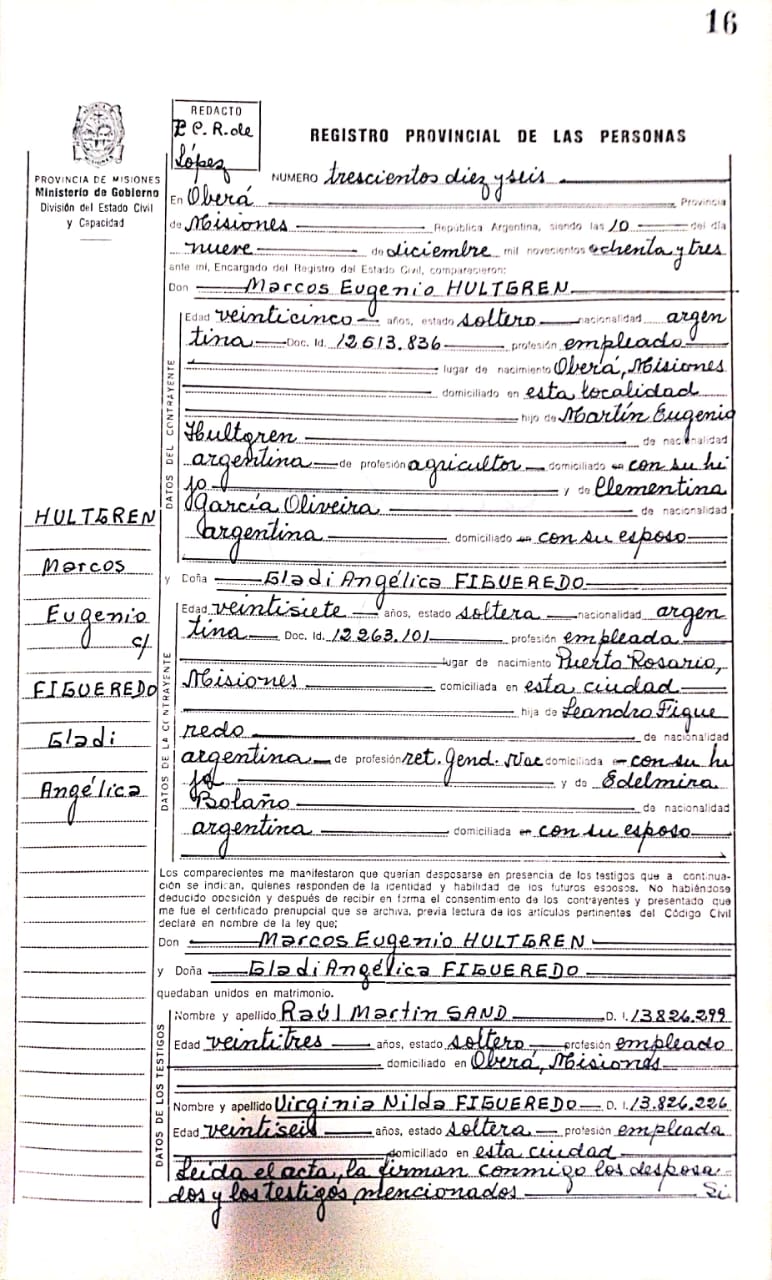 16
REDACTO
P C. R. de
López
REGISTRO PROVINCIAL DE LAS PERSONAS
PROVINCIA DE MISIONES
Ministerio de Gobierno
División del Estado Civil
y Capacidad
NUMERO trescientos diez y seis
En Oberá Provincia
de Misiones República Argentina, siendo las 10 del día
nueve de diciembre mil novecientos ochenta y tres
ante mí, Encargado del Registro del Estado Civil, comparecieron:
Don Marcos Eugenio HULTGREN
DATOS DEL CONTRAYENTE
Edad veinticinco años, estado soltero nacionalidad argen
tina Doc. Id. 12.613.836 profesión empleado
lugar de nacimiento Oberá, Misiones
domiciliado en esta localidad
hijo de Martín Eugenio
Hultgren de nacionalidad
argentina de profesión agricultor domiciliado en con su hi
jo y de Clementina
García Oliveira de nacionalidad
argentina domiciliado en con su esposo
HULTGREN
Marcos
Eugenio
c/
FIGUEREDO
Gladi
Angélica
y Doña Gladi Angélica FIGUEREDO
DATOS DE LA CONTRAYENTE
Edad veintisiete años, estado soltera nacionalidad argen
tina Doc. Id. 12.263.101 profesión empleada
lugar de nacimiento Puerto Rosario,
Misiones domiciliada en esta ciudad
hija de Leandro Figue
redo de nacionalidad
argentina de profesión ret. Gend. Nac domiciliada en con su hi
ja y de Edelmira
Bolaño de nacionalidad
argentina domiciliada en con su esposo
Los comparecientes me manifestaron que querían desposarse en presencia de los testigos que a continua-
ción se indican, quienes responden de la identidad y habilidad de los futuros esposos. No habiéndose
deducido oposición y después de recibir en forma el consentimiento de los contrayentes y presentado que
me fue el certificado prenupcial que se archiva, previa lectura de los artículos pertinentes del Código Civil
declaré en nombre de la ley que;
Don Marcos Eugenio HULTGREN
y Doña Gladi Angélica FIGUEREDO
quedaban unidos en matrimonio.
DATOS DE LOS TESTIGOS
Nombre y apellido Raúl Martin SAND D. I. 13.826.299
Edad veintitres años, estado soltero profesión empleado
domiciliado en Oberá, Misiones
Nombre y apellido Virginia Nilda FIGUEREDO D. I. 13.826.226
Edad veintiseis años, estado soltera profesión empleada
domiciliado en esta ciudad
Leída el acta, la firman conmigo los desposa
dos y los testigos mencionados Si